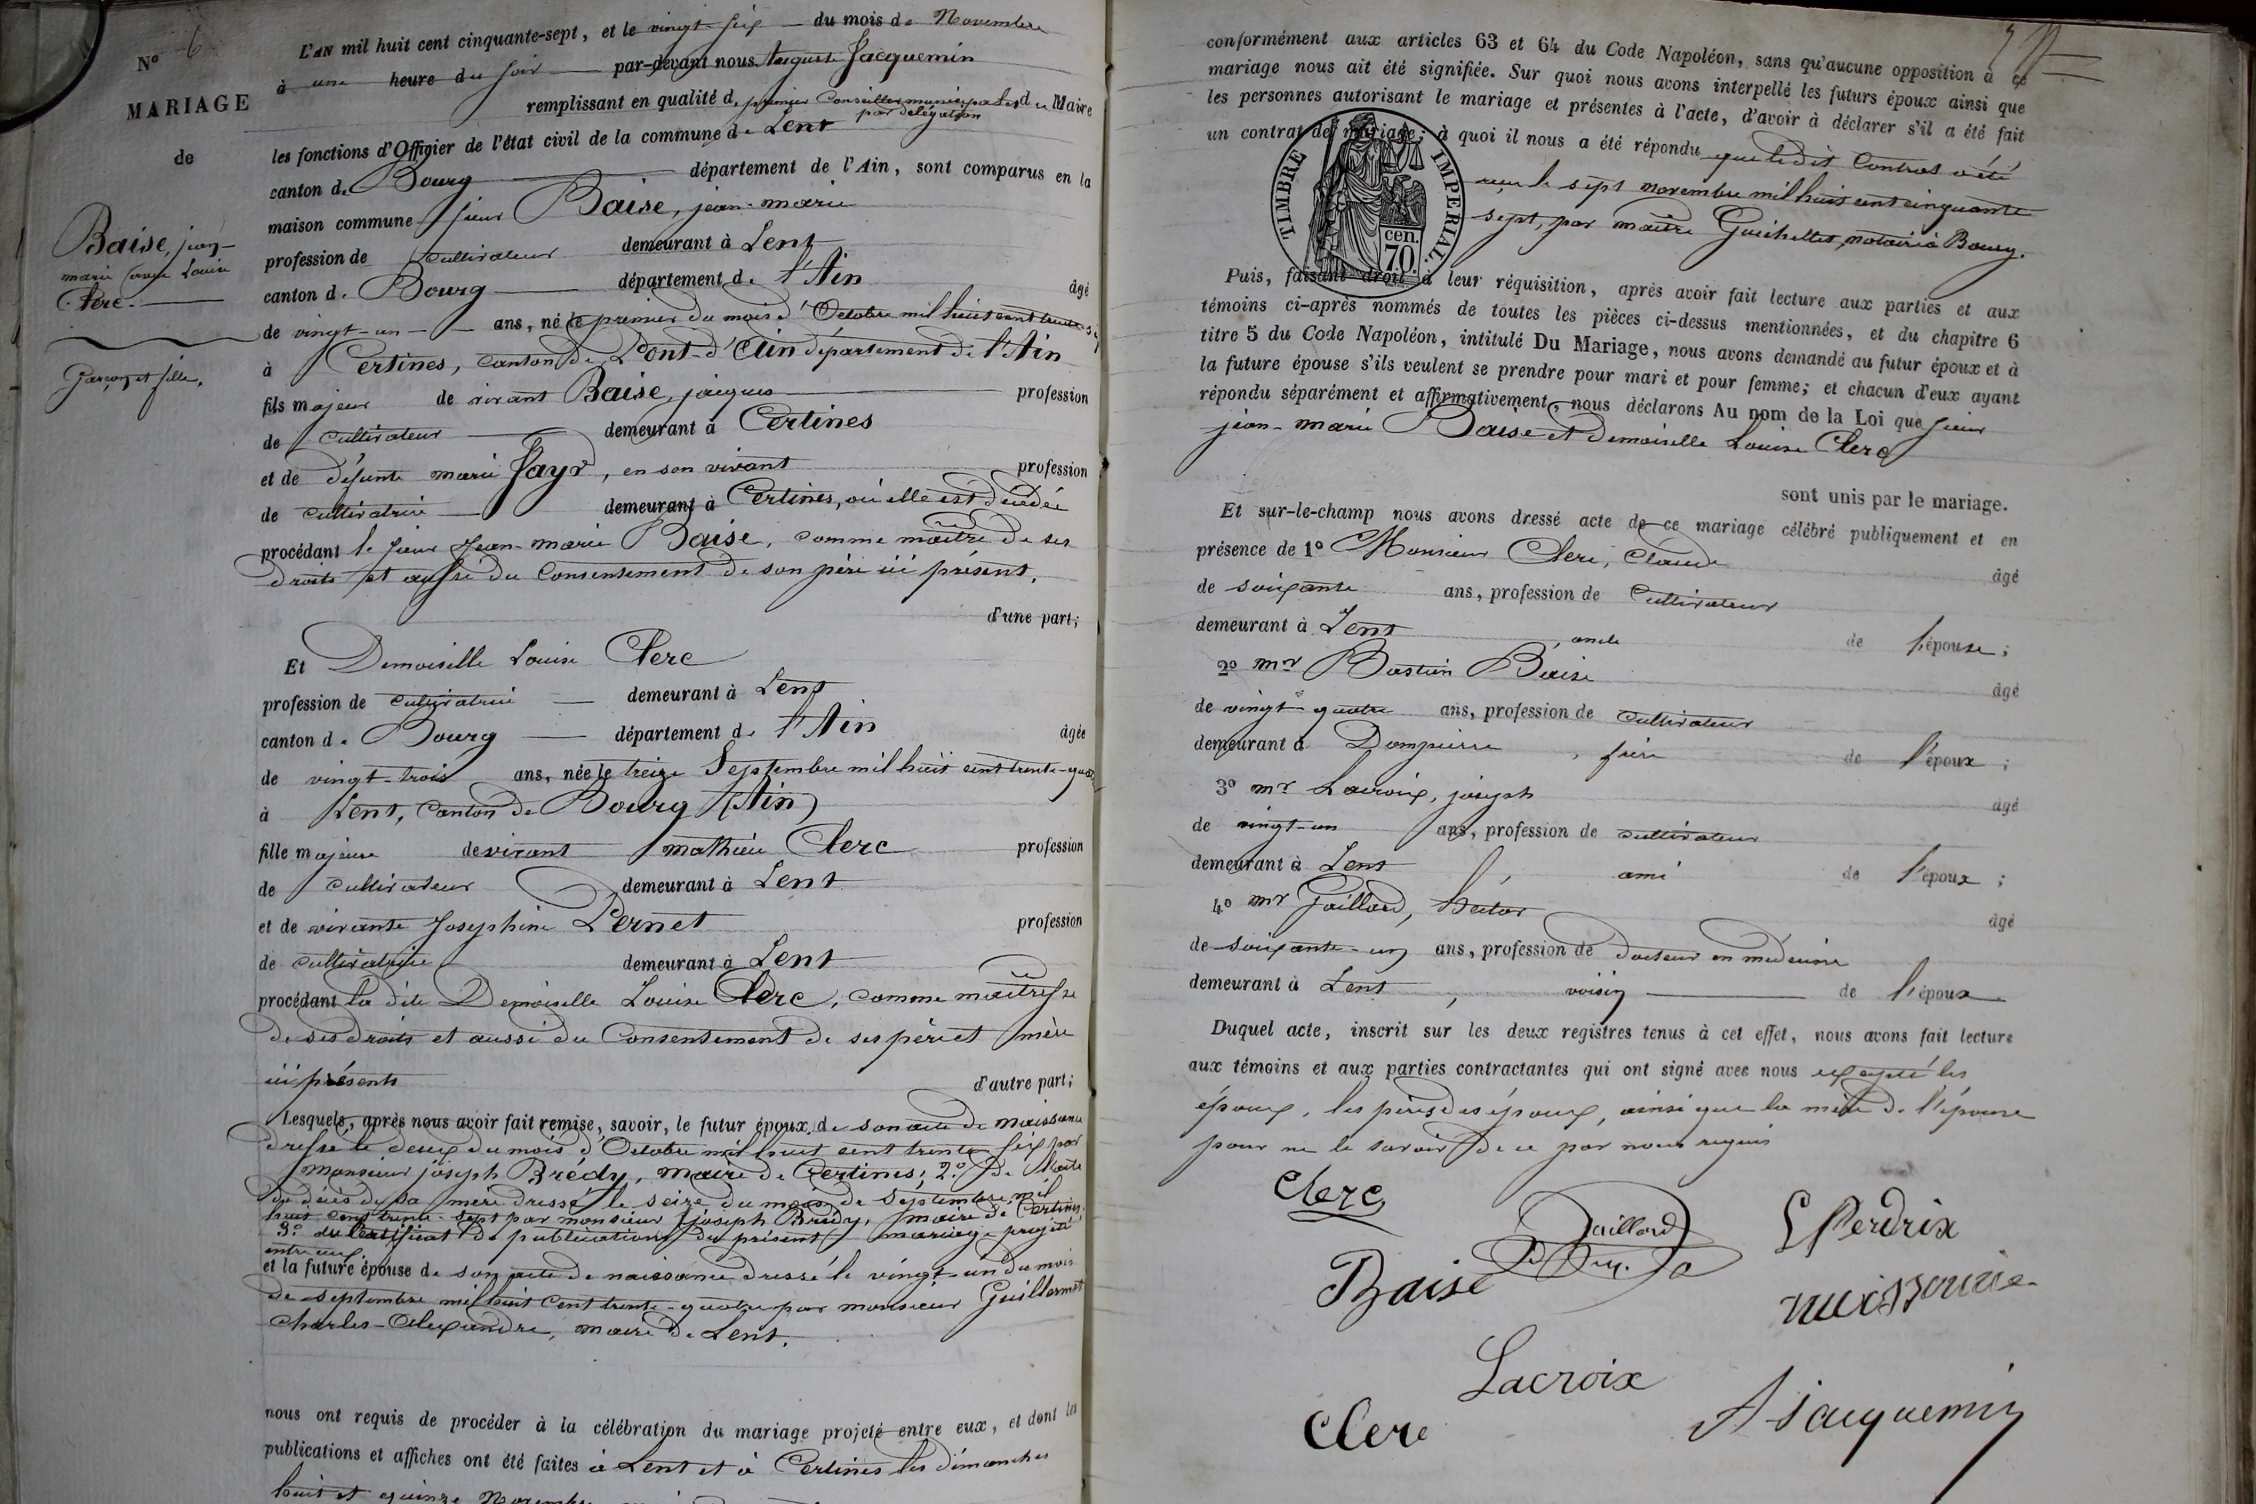 L'AN mil huit cent cinquante-sept, et le vingt-six du mois de Novembre
à une heure du soir par-devant nous Auguste Jacquemin
remplissant en qualité de premier Conseiller municipal et de Maire
par délégation
les fonctions d'Officier de l'état civil de la commune de Lent
canton de Bourg département de l'Ain, sont comparus en la
maison commune sieur Baise, jean-marie
profession de cultivateur demeurant à Lent
canton de Bourg département de l'Ain âgé
de vingt-un ans, né le premier du mois d'Octobre mil huit cent trente-six
à Certines, canton de Pont-d'Ain département de l'Ain
fils majeur de vivant Baise, jacques profession
de cultivateur demeurant à Certines
et de défunte marie Fayr, en son vivant profession
de cultivatrice demeurant à Certines, où elle est décédée
procédant le sieur Jean-marie Baise, comme maître de ses
droits et aussi du Consentement de son père ici présent,
d'une part;
Et Demoiselle Louise Clerc
profession de cultivatrice demeurant à Lent
canton de Bourg département de l'Ain âgée
de vingt-trois ans, née le treize Septembre mil huit cent trente-quatre
à Lent, canton de Bourg (Ain)
fille majeure de vivant mathieu Clerc profession
de cultivateur demeurant à Lent
et de vivante Josephine Pernet profession
de cultivatrice demeurant à Lent
procédant la dite Demoiselle Louise Clerc, comme maîtresse
de ses droits et aussi du Consentement de ses père et mère
ici présents d'autre part;
Lesquels, après nous avoir fait remise, savoir, le futur époux, de son acte de naissance
dressé le deux du mois d'Octobre mil huit cent trente six par
monsieur joseph Brédy, maire de Certines; 2º de l'acte
de décès de sa mère dressé le seize du mois de septembre mil
huit cent trente-sept par monsieur joseph Brédy, maire de Certines
3º du Certificat de publications du présent mariage projeté
entre eux.
et la future épouse de son acte de naissance dressé le vingt-un du mois
de septembre mil huit cent trente-quatre par monsieur Guillermet
Charles-Alexandre, maire de Lent.
nous ont requis de procéder à la célébration du mariage projeté entre eux, et dont les
publications et affiches ont été faites à Lent et à Certines les dimanches
huit et quinze Novembre
Nº 6
MARIAGE
de
Baise, jean-
marie avec Louise
Clerc.
Garçon et fille.
conformément aux articles 63 et 64 du Code Napoléon, sans qu'aucune opposition à ce
mariage nous ait été signifiée. Sur quoi nous avons interpellé les futurs époux ainsi que
les personnes autorisant le mariage et présentes à l'acte, d'avoir à déclarer s'il a été fait
un contrat de mariage; à quoi il nous a été répondu que le dit Contrat a été
reçu le sept novembre mil huit cent cinquante
sept, par maître Guichellet, notaire à Bourg.
TIMBRE IMPERIAL.
70 cen.
Puis, faisant droit à leur réquisition, après avoir fait lecture aux parties et aux
témoins ci-après nommés de toutes les pièces ci-dessus mentionnées, et du chapitre 6
titre 5 du Code Napoléon, intitulé Du Mariage, nous avons demandé au futur époux et à
la future épouse s'ils veulent se prendre pour mari et pour femme; et chacun d'eux ayant
répondu séparément et affirmativement, nous déclarons Au nom de la Loi que sieur
jean-marie Baise et Demoiselle Louise Clerc
sont unis par le mariage.
Et sur-le-champ nous avons dressé acte de ce mariage célébré publiquement et en
présence de 1º Monsieur Clerc, Claude âgé
de soixante ans, profession de cultivateur
demeurant à Lent, oncle de l'épouse;
2º mr Bastien Baise âgé
de vingt-quatre ans, profession de cultivateur
demeurant à Dompierre, frère de l'époux;
3º mr Lacroix, joseph âgé
de vingt-un ans, profession de cultivateur
demeurant à Lent, ami de l'époux;
4º mr Gaillard, hector âgé
de soixante-un ans, profession de docteur en médecine
demeurant à Lent, voisin de l'époux
Duquel acte, inscrit sur les deux registres tenus à cet effet, nous avons fait lecture
aux témoins et aux parties contractantes qui ont signé avec nous excepté les
époux, les pères des époux, ainsi que la mère de l'épouse
pour ne le savoir de ce par nous requis
Clerc
Gaillard
Perdrix
Baise
Lacroix
A Jacquemin
Clerc